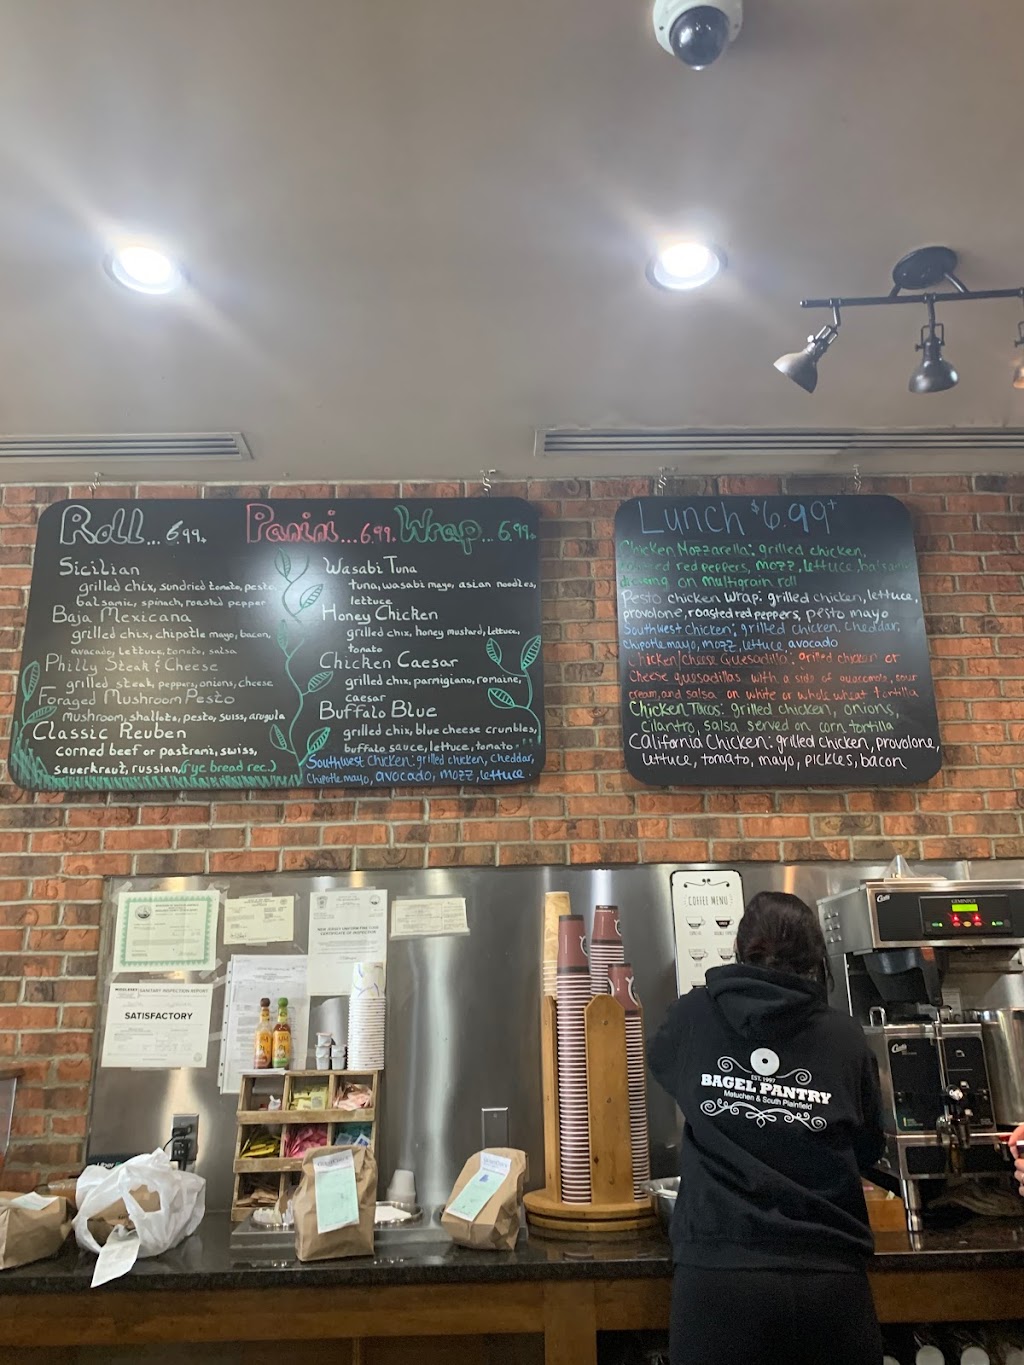 Roll... 6.99+ Panini... 6.99+ Wrap... 6.99+
Sicilian
grilled chix, sundried tomato, pesto,
balsamic, spinach, roasted pepper
Baja Mexicana
grilled chix, chipotle mayo, bacon,
avacado, lettuce, tomato, salsa
Philly Steak & Cheese
grilled steak, peppers, onions, cheese
Foraged Mushroom Pesto
mushroom, shallots, pesto, swiss, arugula
Classic Reuben
corned beef or pastrami, swiss,
sauerkraut, russian, (ryc bread rec.)
Wasabi Tuna
tuna, wasabi mayo, asian noodles,
lettuce
Honey Chicken
grilled chix, honey mustard, lettuce,
tomato
Chicken Caesar
grilled chix, parmigiano, romaine,
caesar
Buffalo Blue
grilled chix, blue cheese crumbles,
buffalo sauce, lettuce, tomato
Southwest Chicken: grilled chicken, cheddar,
Chipotle mayo, avocado, mozz, lettuce.
Lunch $6.99+
Chicken Mozzarella: grilled chicken,
red peppers, mozz, lettuce, balsamic
on multigrain roll
Pesto chicken wrap: grilled chicken, lettuce,
provolone, roasted red peppers, pesto mayo
Southwest Chicken: grilled chicken, cheddar,
Chipotle mayo, mozz, lettuce avocado
Chicken/cheese Quesadilla: grilled chicken or
cheese quesadillas with a side of guacamole, sour
cream, and salsa on white or whole wheat tortilla
Chicken Tacos: grilled chicken, onions,
Cilantro, salsa served on corn tortilla
California Chicken: grilled chicken, provolone,
lettuce, tomato, mayo, pickles, bacon
COFFEE MENU
NEW JERSEY UNIFORM FIRE CODE
CERTIFICATE OF INSPECTION
SANITARY INSPECTION REPORT
SATISFACTORY
EST. 1997
BAGEL PANTRY
Metuchen & South Plainfield
GEMINI
Curtis
Curtis